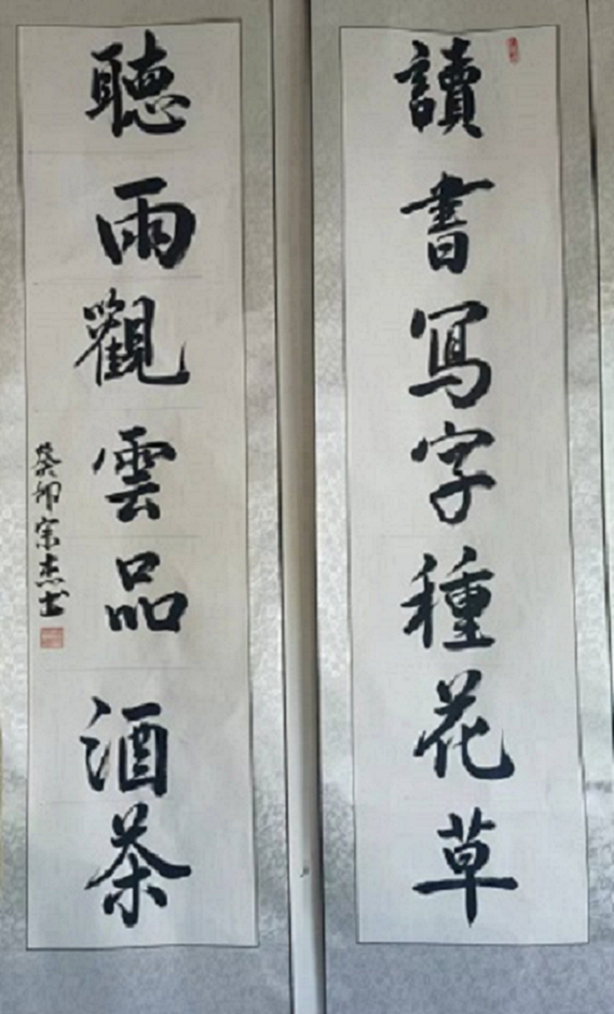 讀書寫字種花草
聽雨觀雲品酒茶
癸卯宗杰书